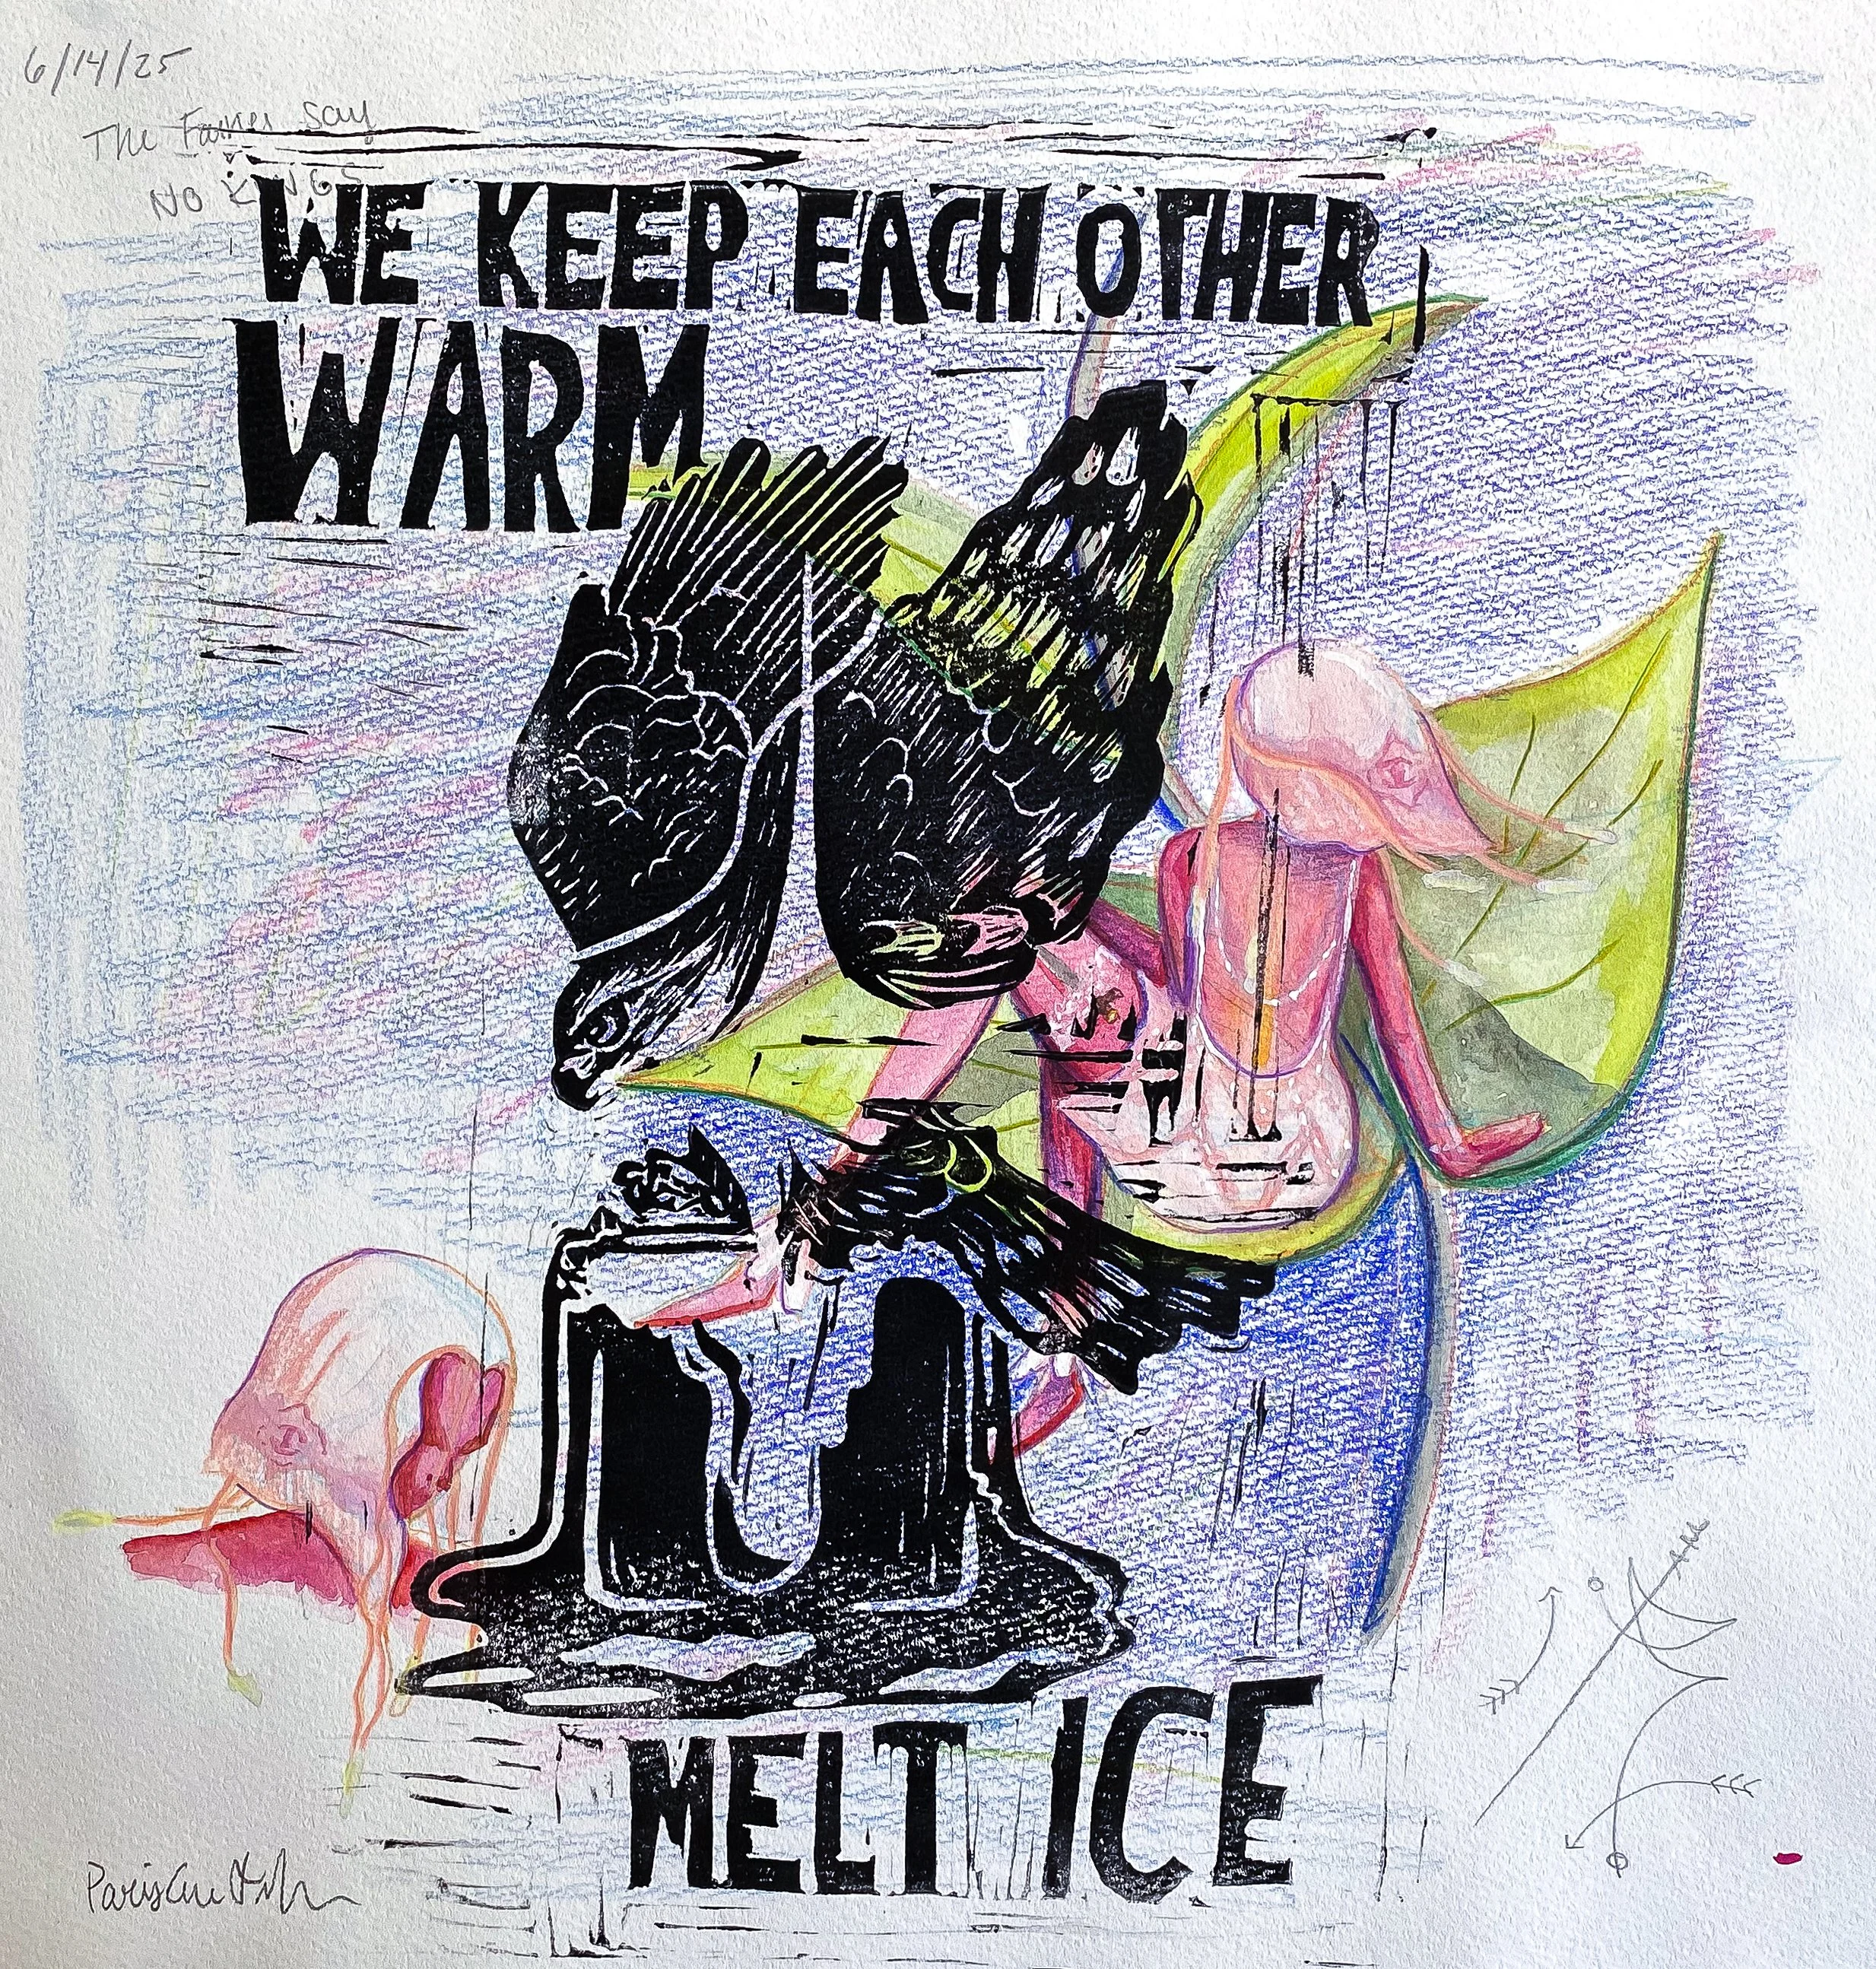 6/14/25
The Fairies say
NO KINGS
WE KEEP EACH OTHER
WARM
MELT ICE